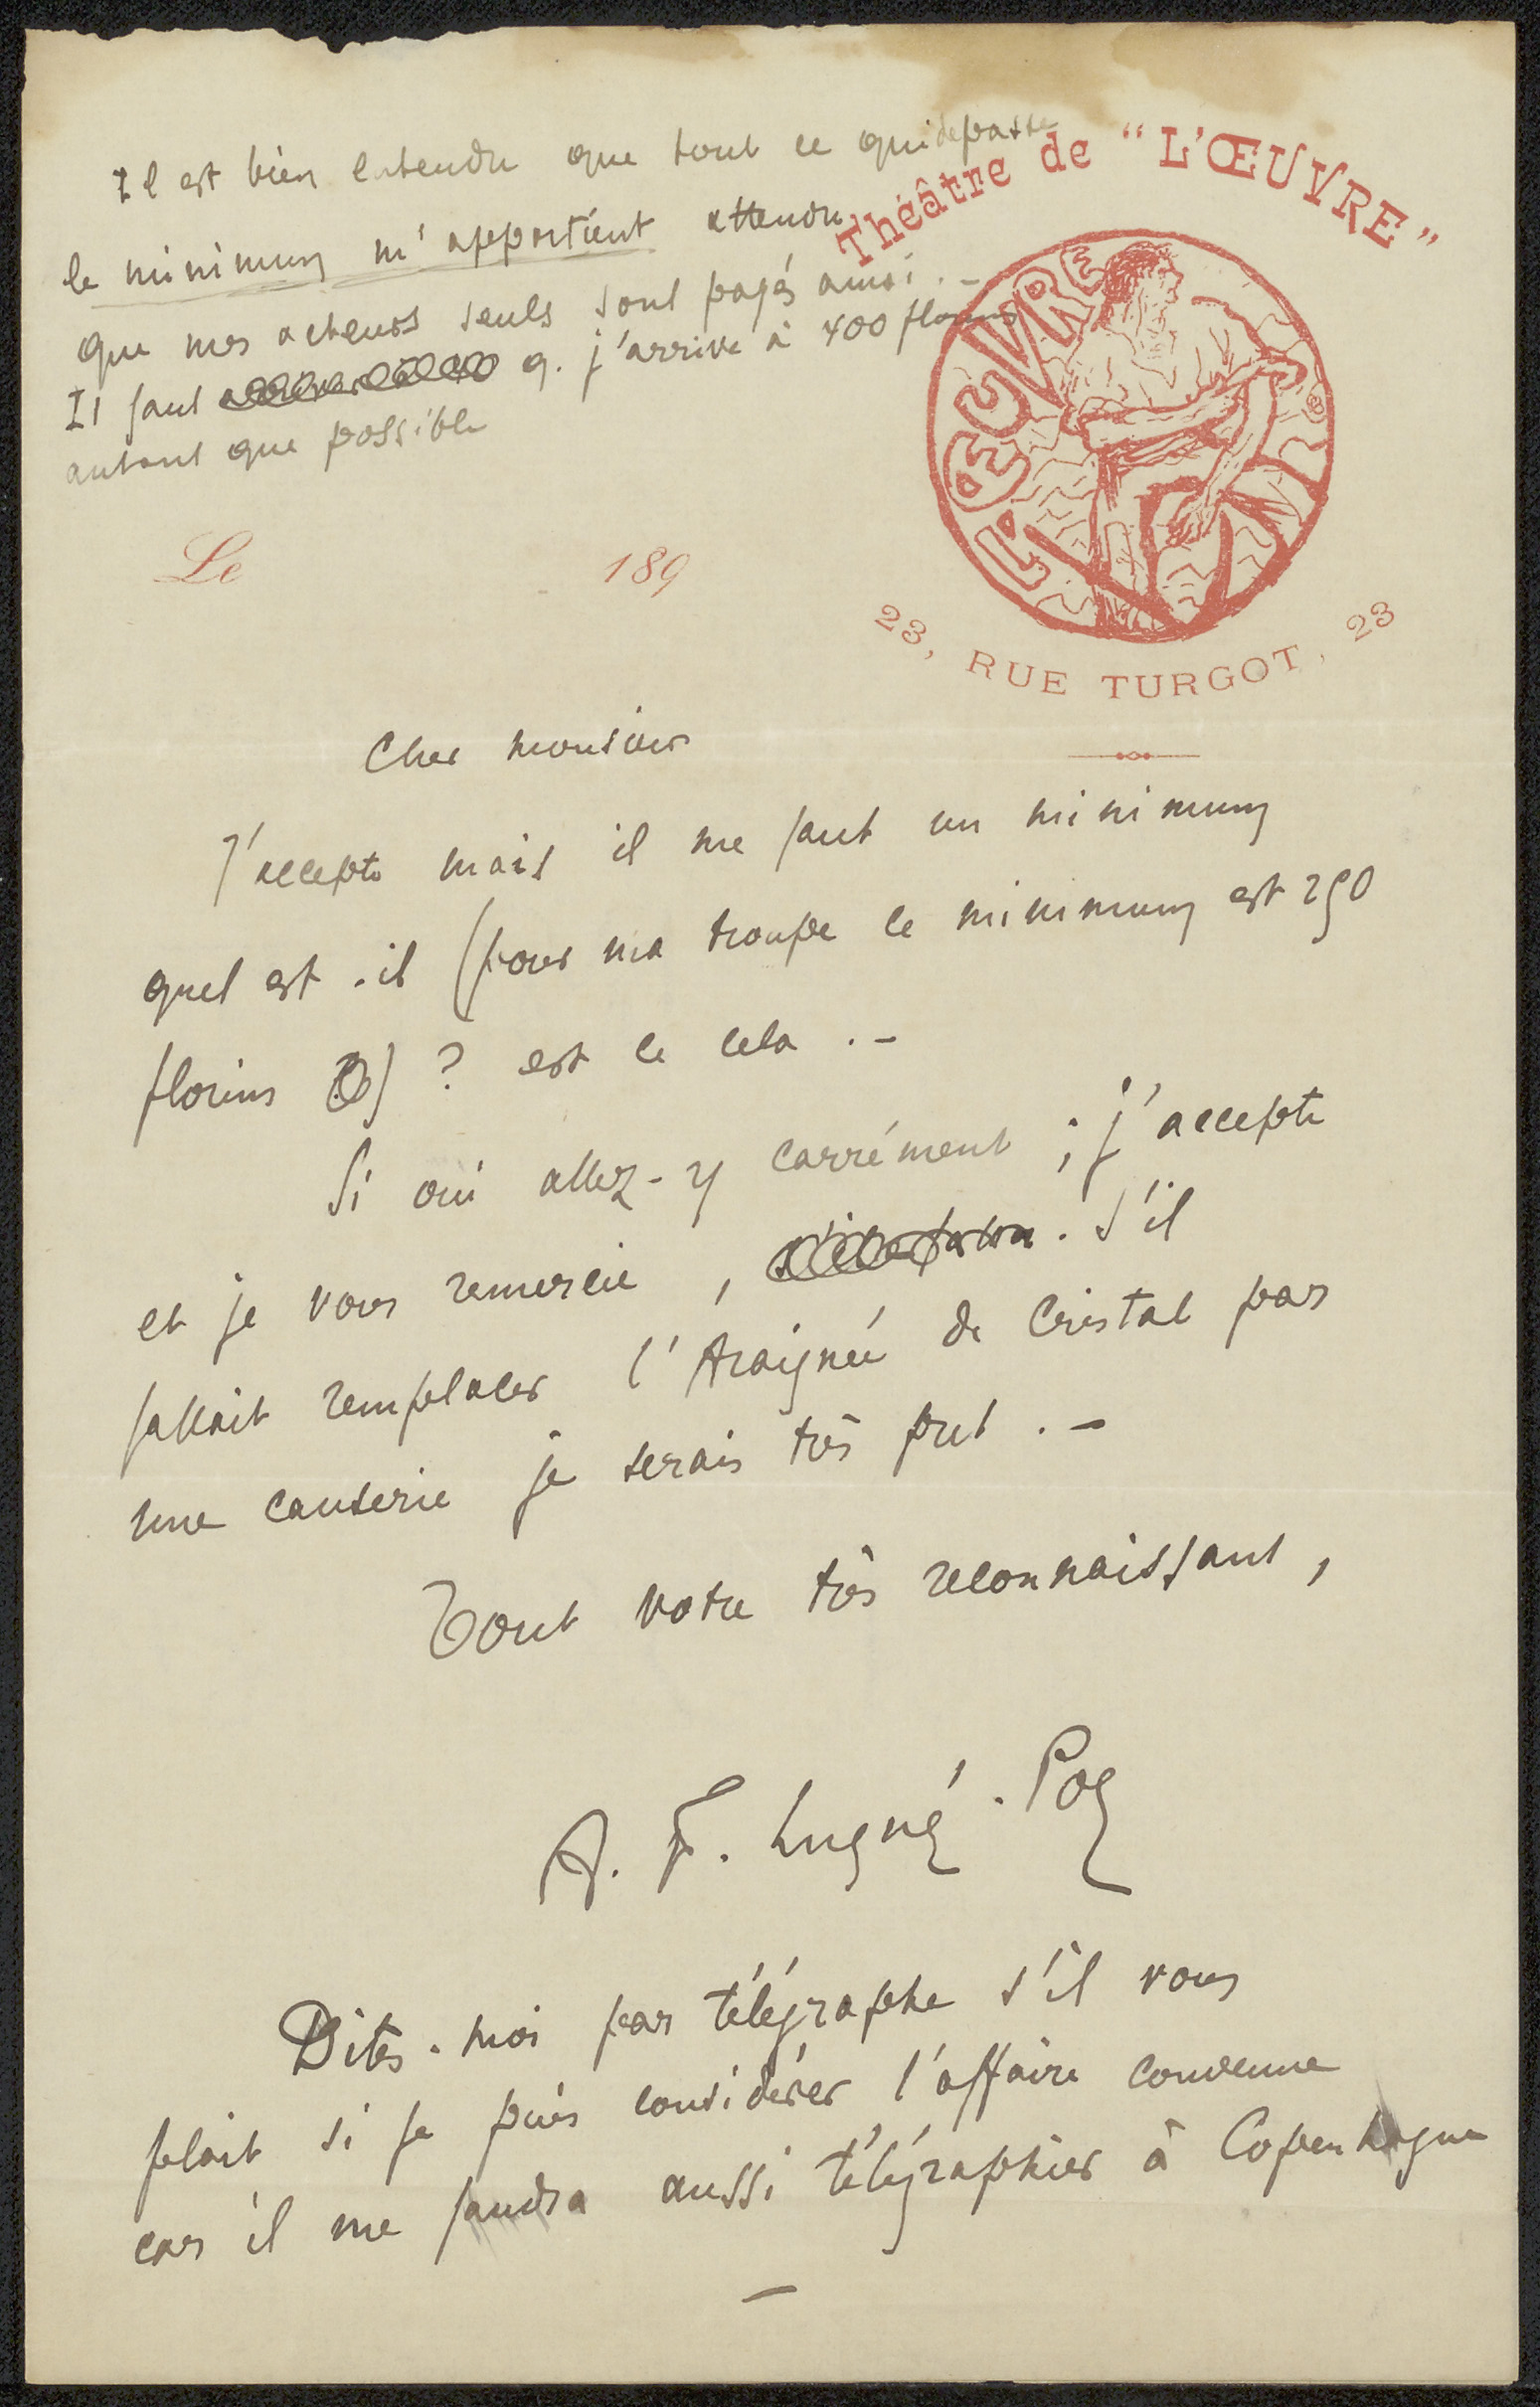 Il est bien entendu que tout ce qui dépasse
le minimum m'appartient attendu
que mes acteurs seuls sont payés ainsi. -
Il faut q. j'arrive à 400 florins
autant que possible
Théâtre de "L'ŒUVRE"
L'ŒUVRE
Le 189
23, RUE TURGOT, 23
Cher monsieur
J'accepte mais il me faut un minimum
quel est-il (pour ma troupe le minimum est 250
florins ) ? est ce cela . -
Si oui allez-y carrément ; j'accepte
et je vous remercie , . S'il
fallait remplacer l'Araignée de Cristal par
une causerie je serais très prêt . -
Tout votre très reconnaissant,
A. F. Lugné-Poe
Dites-moi par télégraphe s'il vous
plait si je puis considérer l'affaire convenue
car il me faudra aussi télégraphier à Copenhague
—